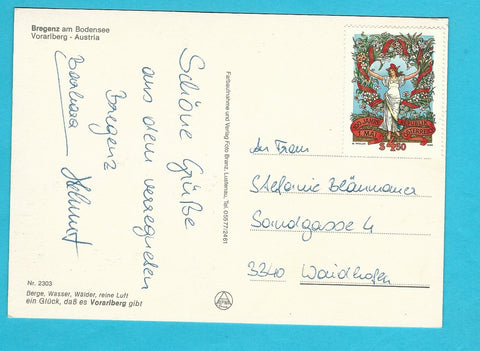 Bregenz am Bodensee
Vorarlberg - Austria
Schöne Grüße
aus dem verregneten
Bregenz
Barbara
Helmut
Nr. 2303
Berge, Wasser, Wälder, reine Luft
ein Glück, daß es Vorarlberg gibt
Farbaufnahme und Verlag Foto Branz, Lustenau, Tel. 05577/2461
1. MAI
S 4.50
An Frau
Stefanie
Sandgasse 4
3340 Waidhofen